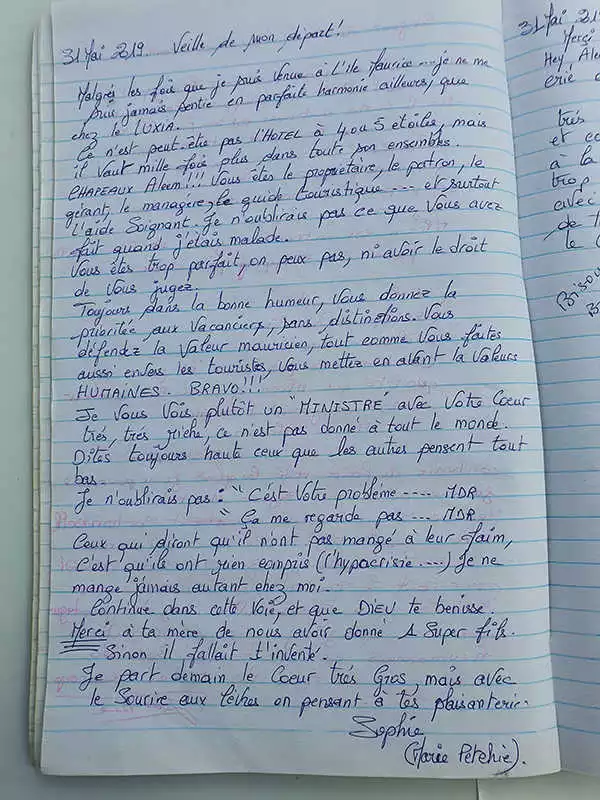 31 Mai 2019. Veille de mon départ!
Malgrés les fois que je suis venue à l'ile Maurice... je ne me
suis jamais sentie en parfaite harmonie ailleurs, que
chez le LUXIA.
Ce n'est peut-être pas l'HOTEL à 4 ou 5 étoiles, mais
il vaut mille fois plus dans toute son ensembles.
CHAPEAUX Aleem!!! Vous êtes le propriétaire, le patron, le
gérant, le manager le guide touristique .... et surtout
l'aide Soignant. Je n'oublirais pas ce que vous avez
fait quand j'étais malade.
Vous êtes trop parfait, on peux pas, ni avoir le droit
de vous jugez.
Toujours dans la bonne humeur, Vous donnez la
priorité aux Vacanciers, sans distinctions. Vous
défendez la Valeur mauricien, tout comme Vous faites
aussi envers les touristes, Vous mettez en avant la Valeurs
HUMAINES. BRAVO!!!
Je Vous Vois plutôt un "MINISTRE" avec Votre Coeur
trés, trés riche, ce n'est pas donné à tout le monde.
Dites toujours haute ceux que les autres pensent tout
bas.
Je n'oublirais pas: " C'ést Votre problème .... MDR
" Ça me regarde pas ... MDR
Ceux qui diront qu'il n'ont pas mangé à leur faim,
C'est qu'ils ont rien compris (l'hypacrisie ....) Je ne
mange jamais autant chez moi.
Continue dans cette Voie, et que DIEU te benisse.
Merci à ta mère de nous avoir donné 1 Super fils.
Sinon il fallait t'inventé.
Je part demain le Coeur trés Gros, mais avec
le Sourire aux lèvres en pensant à tes plaisanterie.
Sophie
(Marie Petchie).
31 Mai 2
Merci
Hey Alee
trés
et c
à la
trop
avec
de t
le
Bisou
B